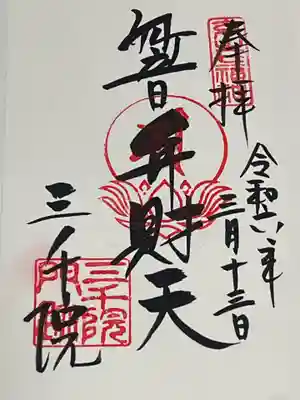 奉拝
令和六年
三月十三日
弁財天
三千院
三千院
門跡